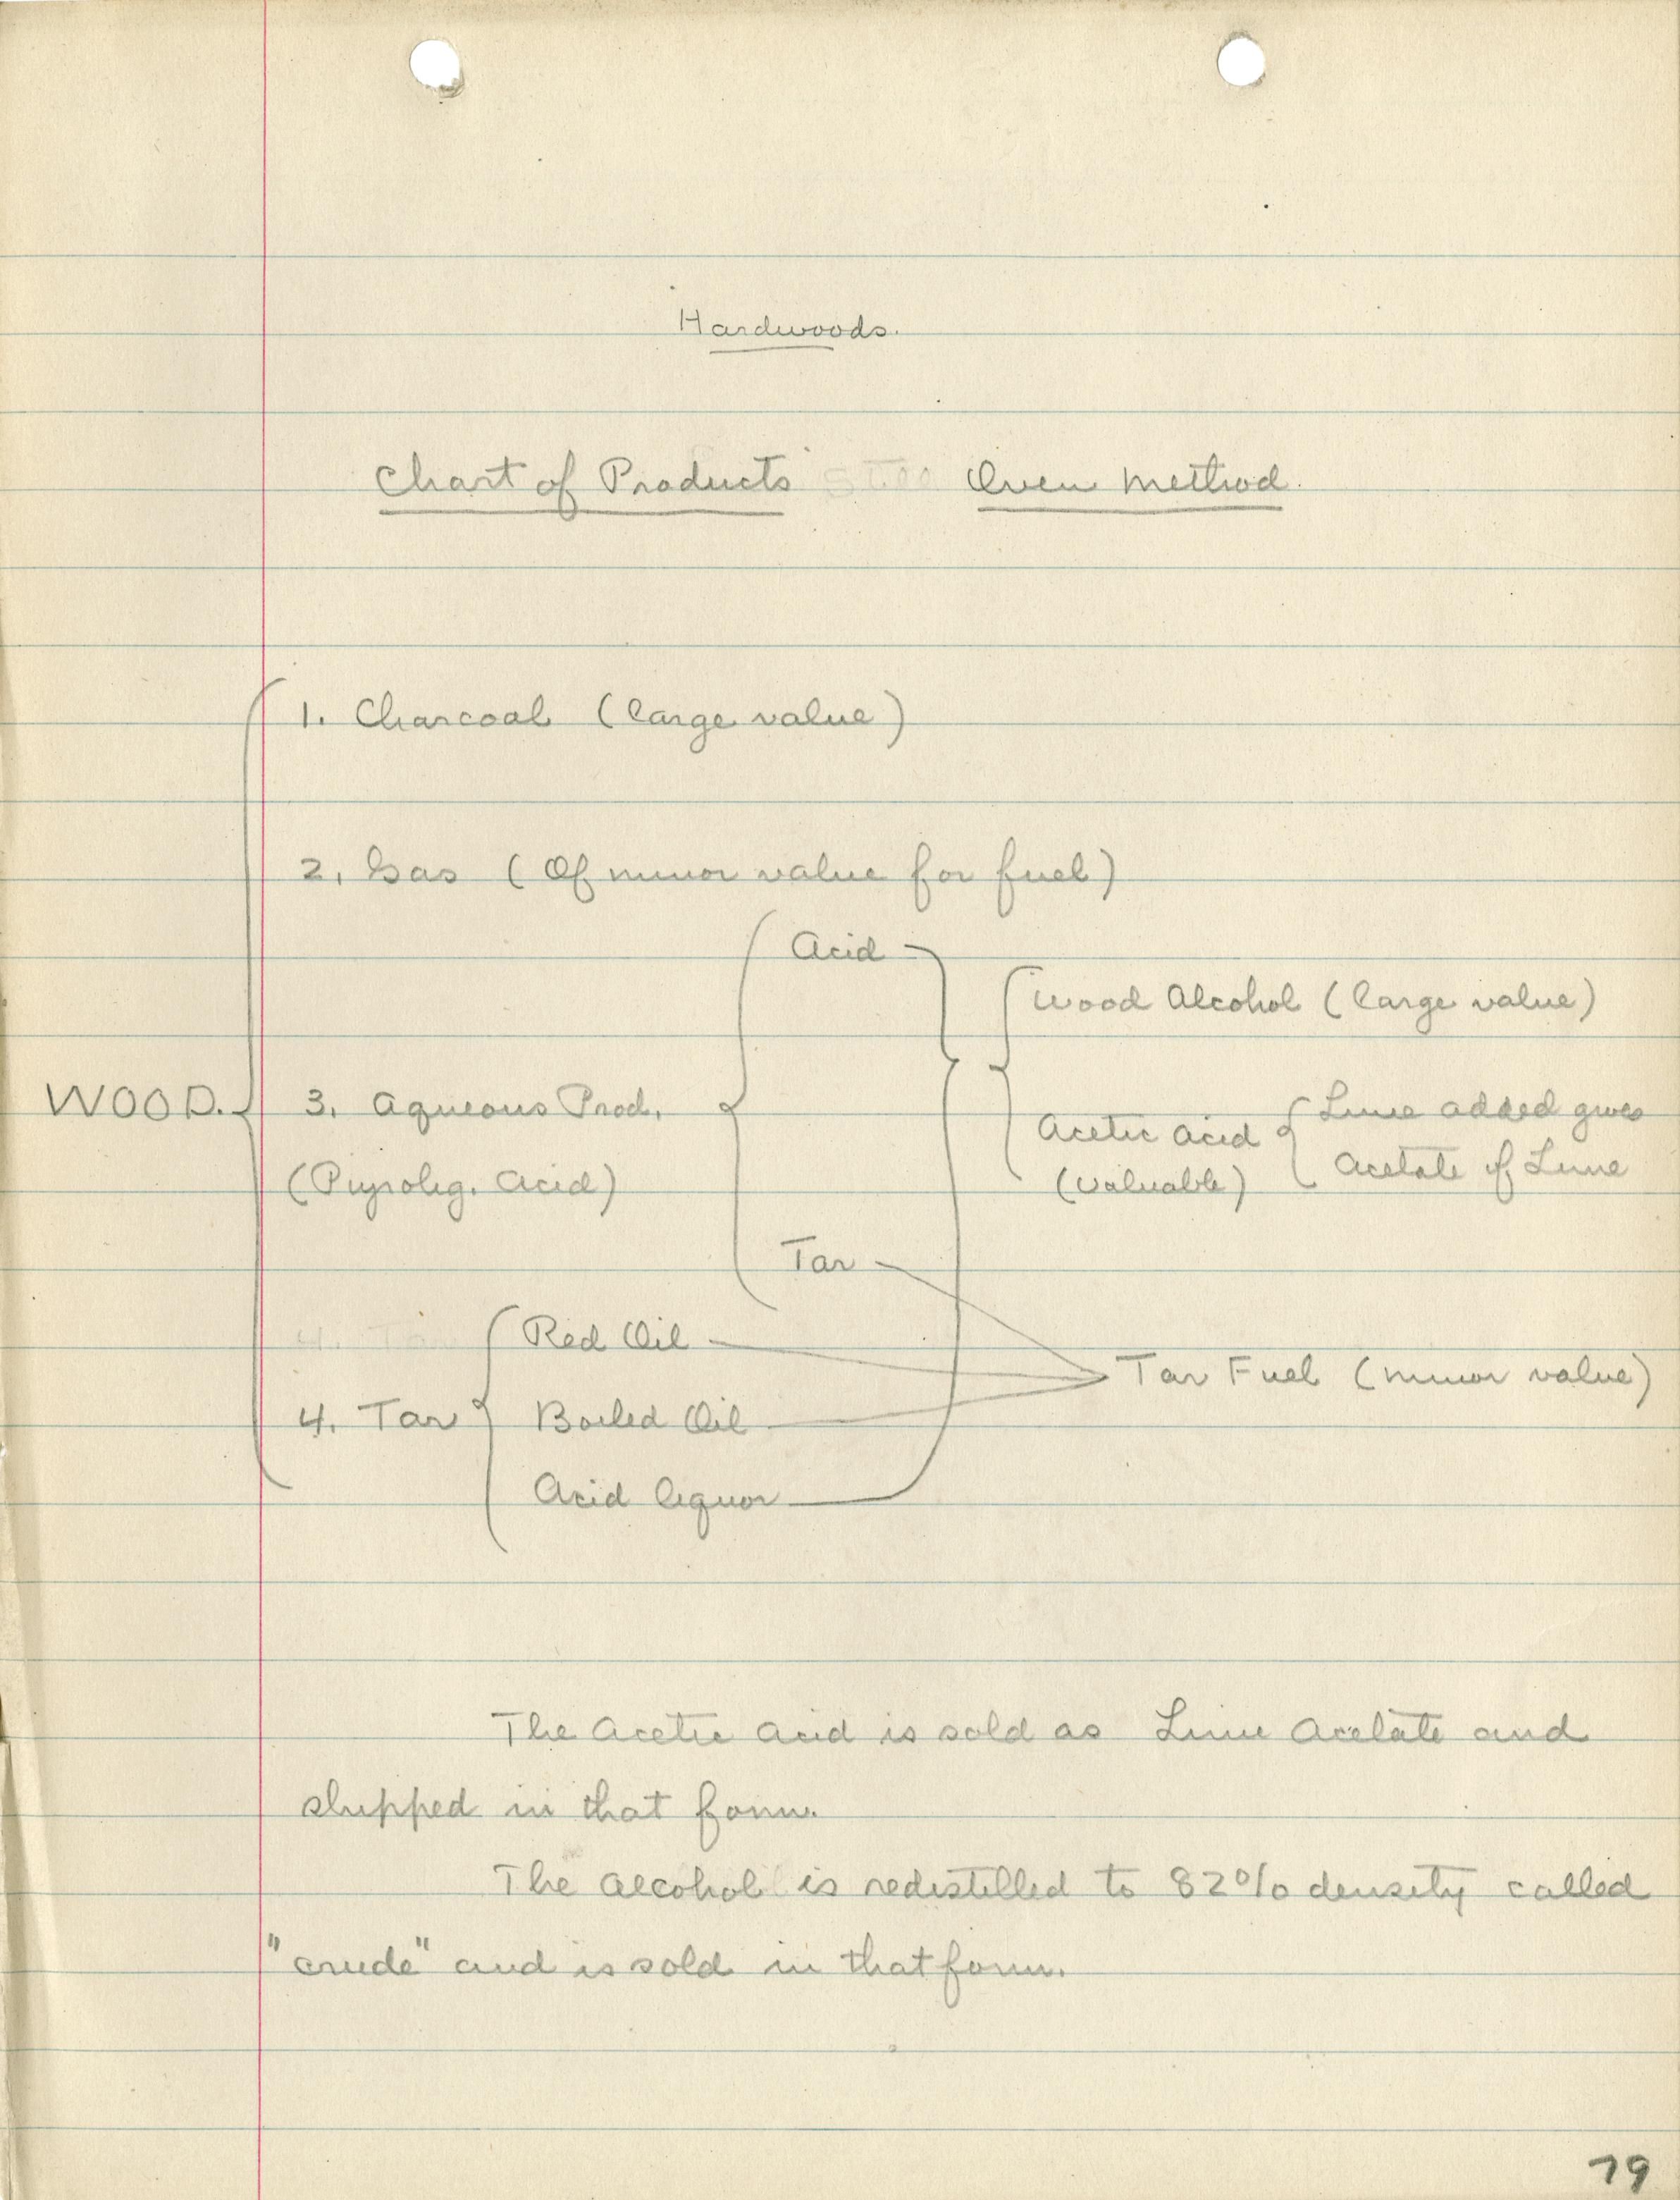 Hardwoods.
Chart of Products Oven Method.
1. Charcoal (large value)
2. Gas (Of minor value for fuel)
Acid
Wood Alcohol (large value)
WOOD. 3. Aqueous Prod.
Acetic Acid
Lime added gives
(Pyrolig. Acid)
(valuable)
Acetate of Lime
Tar
Red Oil
Tar Fuel (minor value)
4. Tar
Boiled Oil
Acid liquor
The Acetic Acid is sold as Lime Acetate and
shipped in that form.
The Alcohol is redistilled to 82% density called
"crude" and is sold in that form.
79